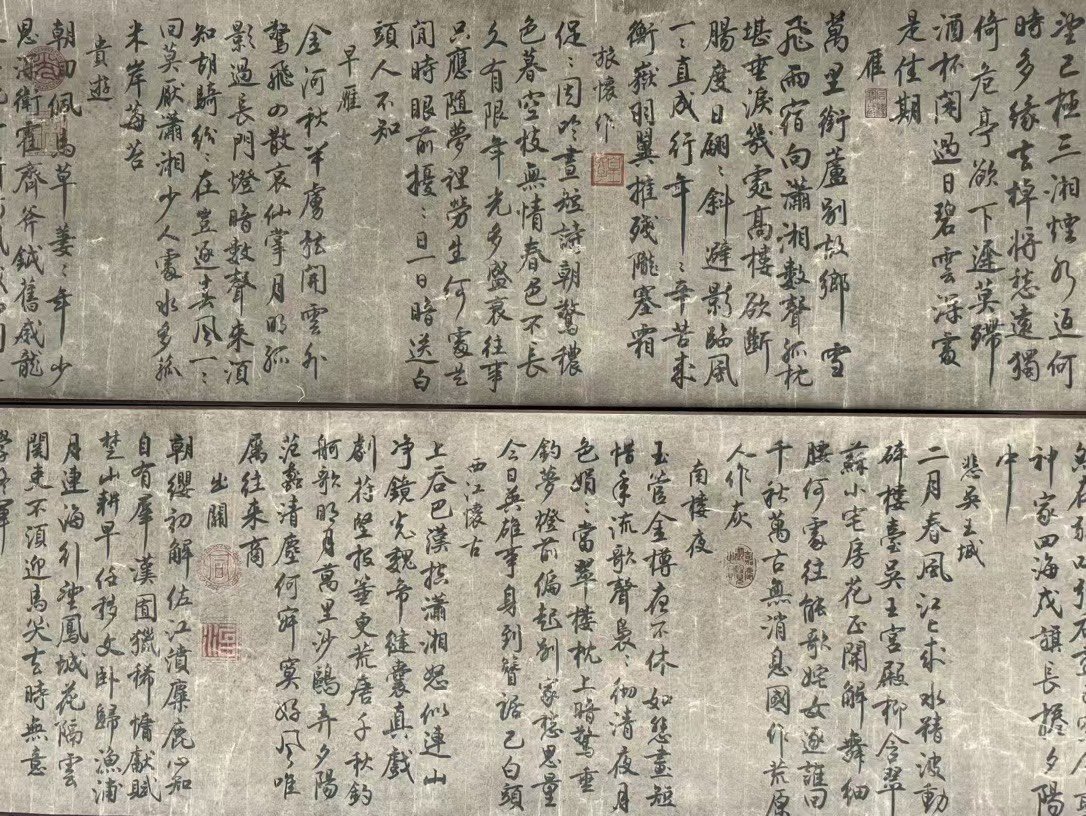 望已極三湘煙水返何
時多緣去棹將愁遠獨
倚危亭欲下遲莫殢
酒杯閑過日碧雲深處
是佳期
雁
萬里銜蘆別故鄉雪
飛雨宿向瀟湘數聲孤枕
堪垂淚幾處高樓欲斷
腸度日翩〻斜避影臨風
一〻直成行年〻辛苦來
衡嶽羽翼摧殘隴塞霜
旅懷作
促〻因吟晝短詩朝驚穠
色暮空枝無情春色不長
久有限年光多盛衰往事
只應隨夢裡勞生何處是
閒時眼前擾〻日一日暗送白
頭人不知
早雁
金河秋半虜弦開雲外
驚飛四散哀仙掌月明孤
影過長門燈暗數聲來須
知胡騎紛〻在豈逐春風一〻
回莫厭瀟湘少人處水多菰
米岸莓苔
貴遊
朝回佩馬草萋〻年少
恩深衛霍齊斧鉞舊威龍
神家四海戍旗長握夕陽
中
悲吳王城
二月春風江上來水精波動
碎樓臺吳王宮殿柳含翠
蘇小宅房花正開解舞細
腰何處往能歌姹女逐誰回
千秋萬古無消息國作荒原
人作灰
南樓夜
玉管金樽夜不休如愁晝短
惜年流歌聲裊〻徹清夜月
色娟〻當翠樓枕上暗驚垂
釣夢燈前偏起別家愁思量
今日英雄事身到簪裾已白頭
西江懷古
上吞巴漢控瀟湘怒似連山
淨鏡光魏帝縫囊真戲
劇苻堅投箠更荒唐千秋釣
舸歌明月萬里沙鷗弄夕陽
范蠡清塵何寂寞好風唯
屬往來商
出關
朝纓初解佐江濆麋鹿心知
自有群漢囿獵稀慵獻賦
楚山耕早任移文臥歸漁浦
月連海引望鳳城花隔雲
關吏不須迎馬笑去時無意